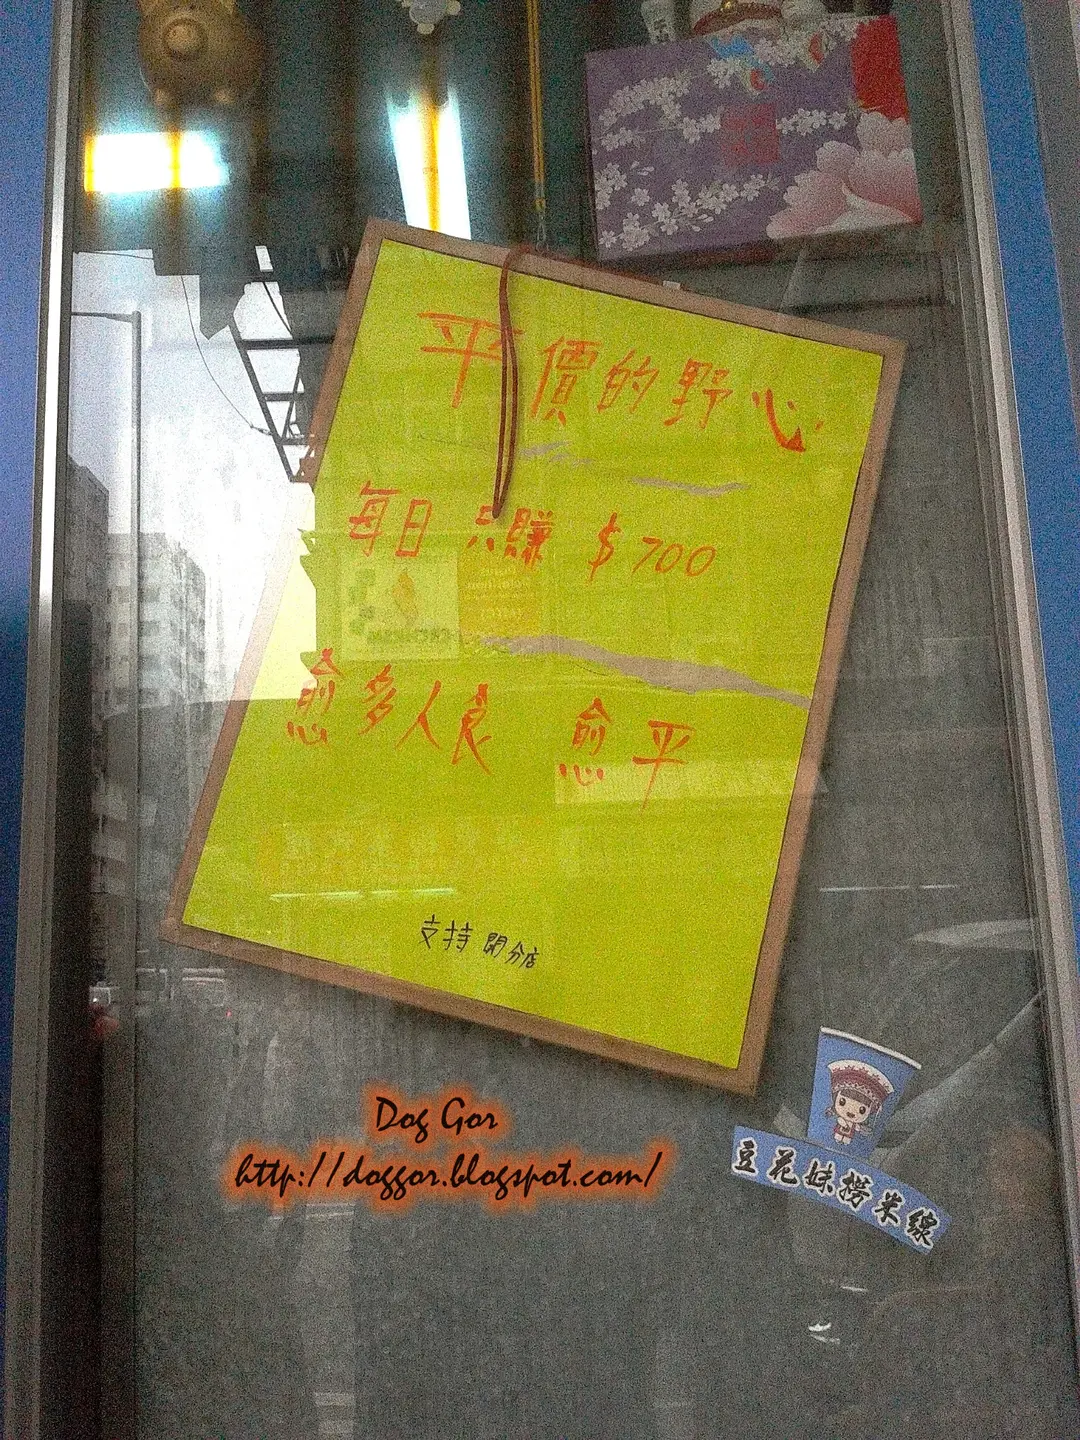 平價的野心
每日只賺 $700
愈多人食 愈平
支持 開分店
Dog Gor
http://doggor.blogspot.com/
豆花妹撈米線